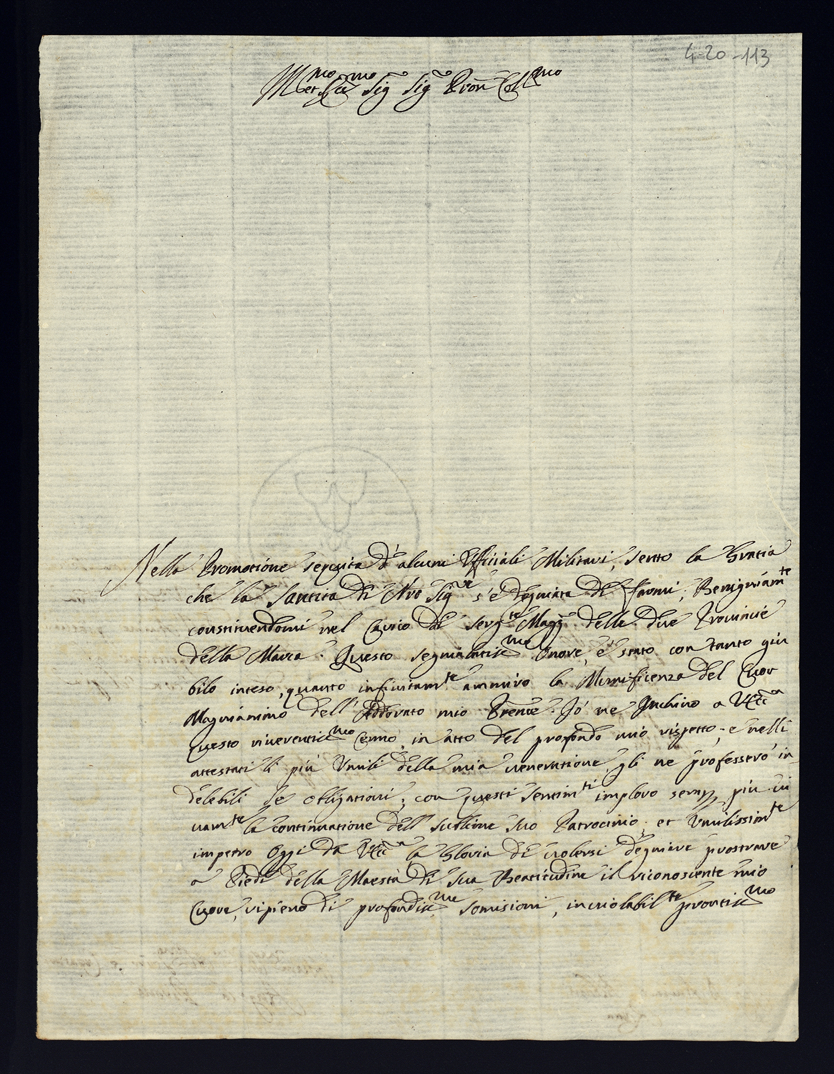 4-20-113
Ill.mo et Ecc.mo Sig.r Sig.r Pron Col.mo
Nella Promotione seguita d'alcuni Uffitiali Militari, sento la Gratia
che la Santità di Nro Sig.re s'è degniata di farmi, Benigniam.te
constituendomi nel Carico di Serg.te Magg.re delle due Provincie
della Marca. Questo segnialatiss.mo Onore, è stato con tanto giu
bilo inteso, quanto infinitam.te ammiro la Munificenza del Cuor
Magnianimo dell'Adorato mio Prencipe. Io ne Inchino a V. Ecc.a
questo riverentiss.mo Cenno, in atto del profondo mio rispetto; e nelli
attestati li più Umili della mia veneratione gli ne professerò in
delebili le obligationi; con questi sentim.ti imploro sempre più vi
vam.te la continuatione dell'sublime suo Patrocinio. et Umilissim.te
impetro Oggi da V. Ecc.a la Gloria di volersi degniare prostrare
a Piedi della Maestà di Sua Beatitudine il riconoscente mio
Cuore, ripieno di profondiss.me somisioni, inviolabil.te prontiss.mo